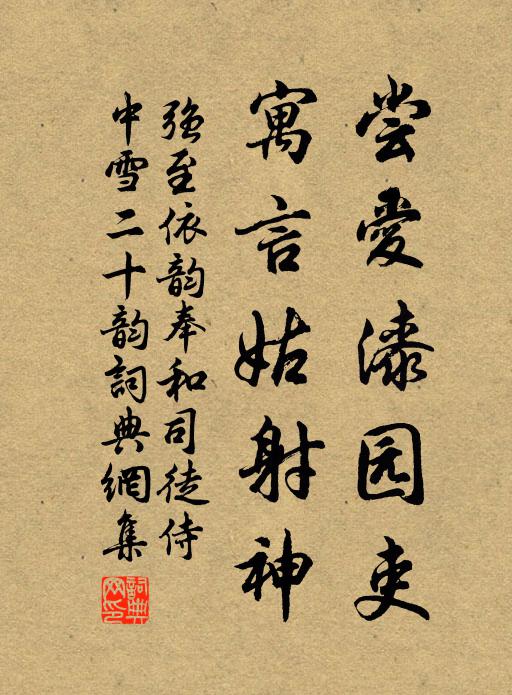 尝爱漆园吏
寓言姑射神
强至依韵奉和司徒侍
中雪二十韵詞典網集
詞典網印